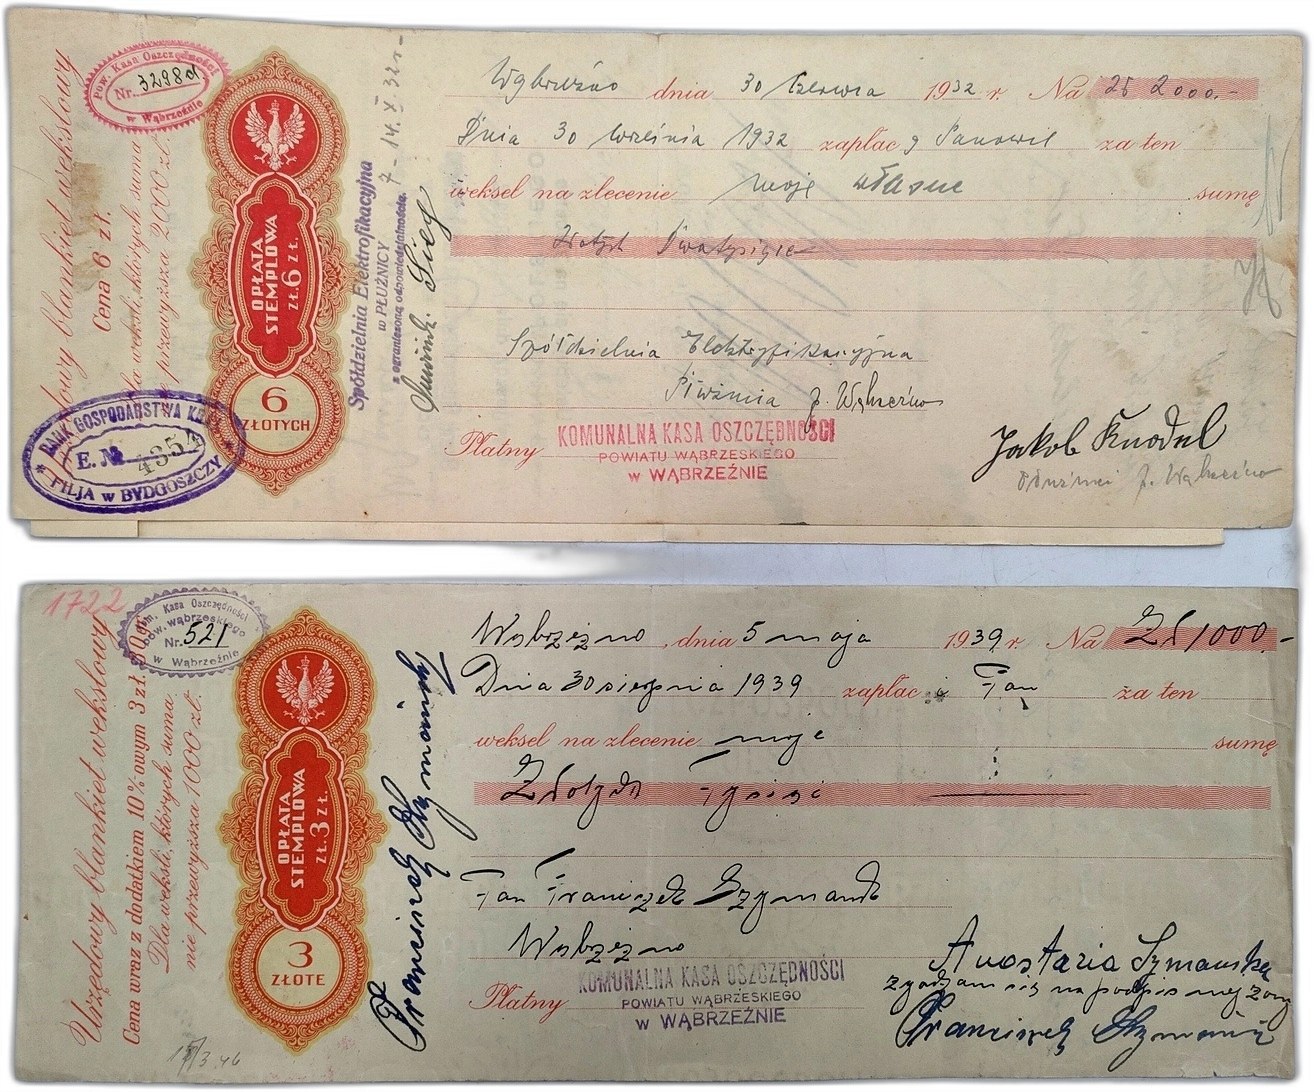 Urzędowy blankiet wekslowy
Cena 6 zł.
Dla weksli, których suma
nie przewyższa 2000 zł.
Pow. Kasa Oszczędności
Nr. 3298d
w Wąbrzeźnie
BANK GOSPODARSTWA KRAJ.
E. No 4354
FILJA w BYDGOSZCZY
OPŁATA
STEMPLOWA
ZŁ. 6 ZŁ.
6
ZŁOTYCH
Spółdzielnia Elektryfikacyjna
w PŁUŻNICY
z ograniczoną odpowiedzialnością
7 - 14. X 32 r -
Wąbrzeźno dnia 30 czerwca 1932 r. Na 2000.-
Dnia 30 września 1932 zapłac Panowie za ten
weksel na zlecenie moje własne sumę
Złotych Dwatysiące
Spółdzielnia Elektryfikacyjna
p. Wąbrzeźno
Płatny KOMUNALNA KASA OSZCZĘDNOŚCI
POWIATU WĄBRZESKIEGO
w WĄBRZEŹNIE
Jakob Knodel
p. Wąbrzeźno
1722
Urzędowy blankiet wekslowy
Cena wraz z dodatkiem 10%-owym 3 zł
Dla weksli, których suma
nie przewyższa 1000 zł.
Kom. Kasa Oszczędności
pow. wąbrzeskiego
Nr. 521
w Wąbrzeźnie
OPŁATA
STEMPLOWA
ZŁ. 3 ZŁ.
3
ZŁOTE
Franciszek Szymański
Wąbrzeźno, dnia 5 maja 1939 r. Na Zł 1000.-
Dnia 30 sierpnia 1939 zapłac i Pan za ten
weksel na zlecenie moje sumę
Złotych Tysiąc
Pan Franciszek Szymański
Wąbrzeźno
Płatny KOMUNALNA KASA OSZCZĘDNOŚCI
POWIATU WĄBRZESKIEGO
w WĄBRZEŹNIE
Anastazia Szymańska
zgadzam się na podpis mej żony
Franciszek Szymański